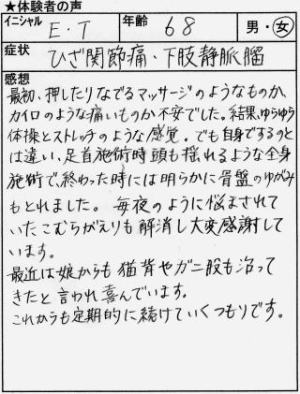 ★体験者の声
イニシャル E.T 年齢 68 男・女
症状 ひざ関節痛・下肢静脈瘤
感想
最初、押したりなでるマッサージのようなものか、
カイロのような痛いものか不安でした。結果、ゆらゆら
体操とストレッチのような感覚。でも自身でするのと
は違い、足首施術時頭も揺れるような全身
施術で、終わった時には明らかに骨盤のゆがみ
もとれました。毎夜のように悩まされて
いたこむらがえりも解消し大変感謝して
います。
最近は娘からも猫背やガニ股も治って
きたと言われ喜んでいます。
これからも定期的に続けていくつもりです。